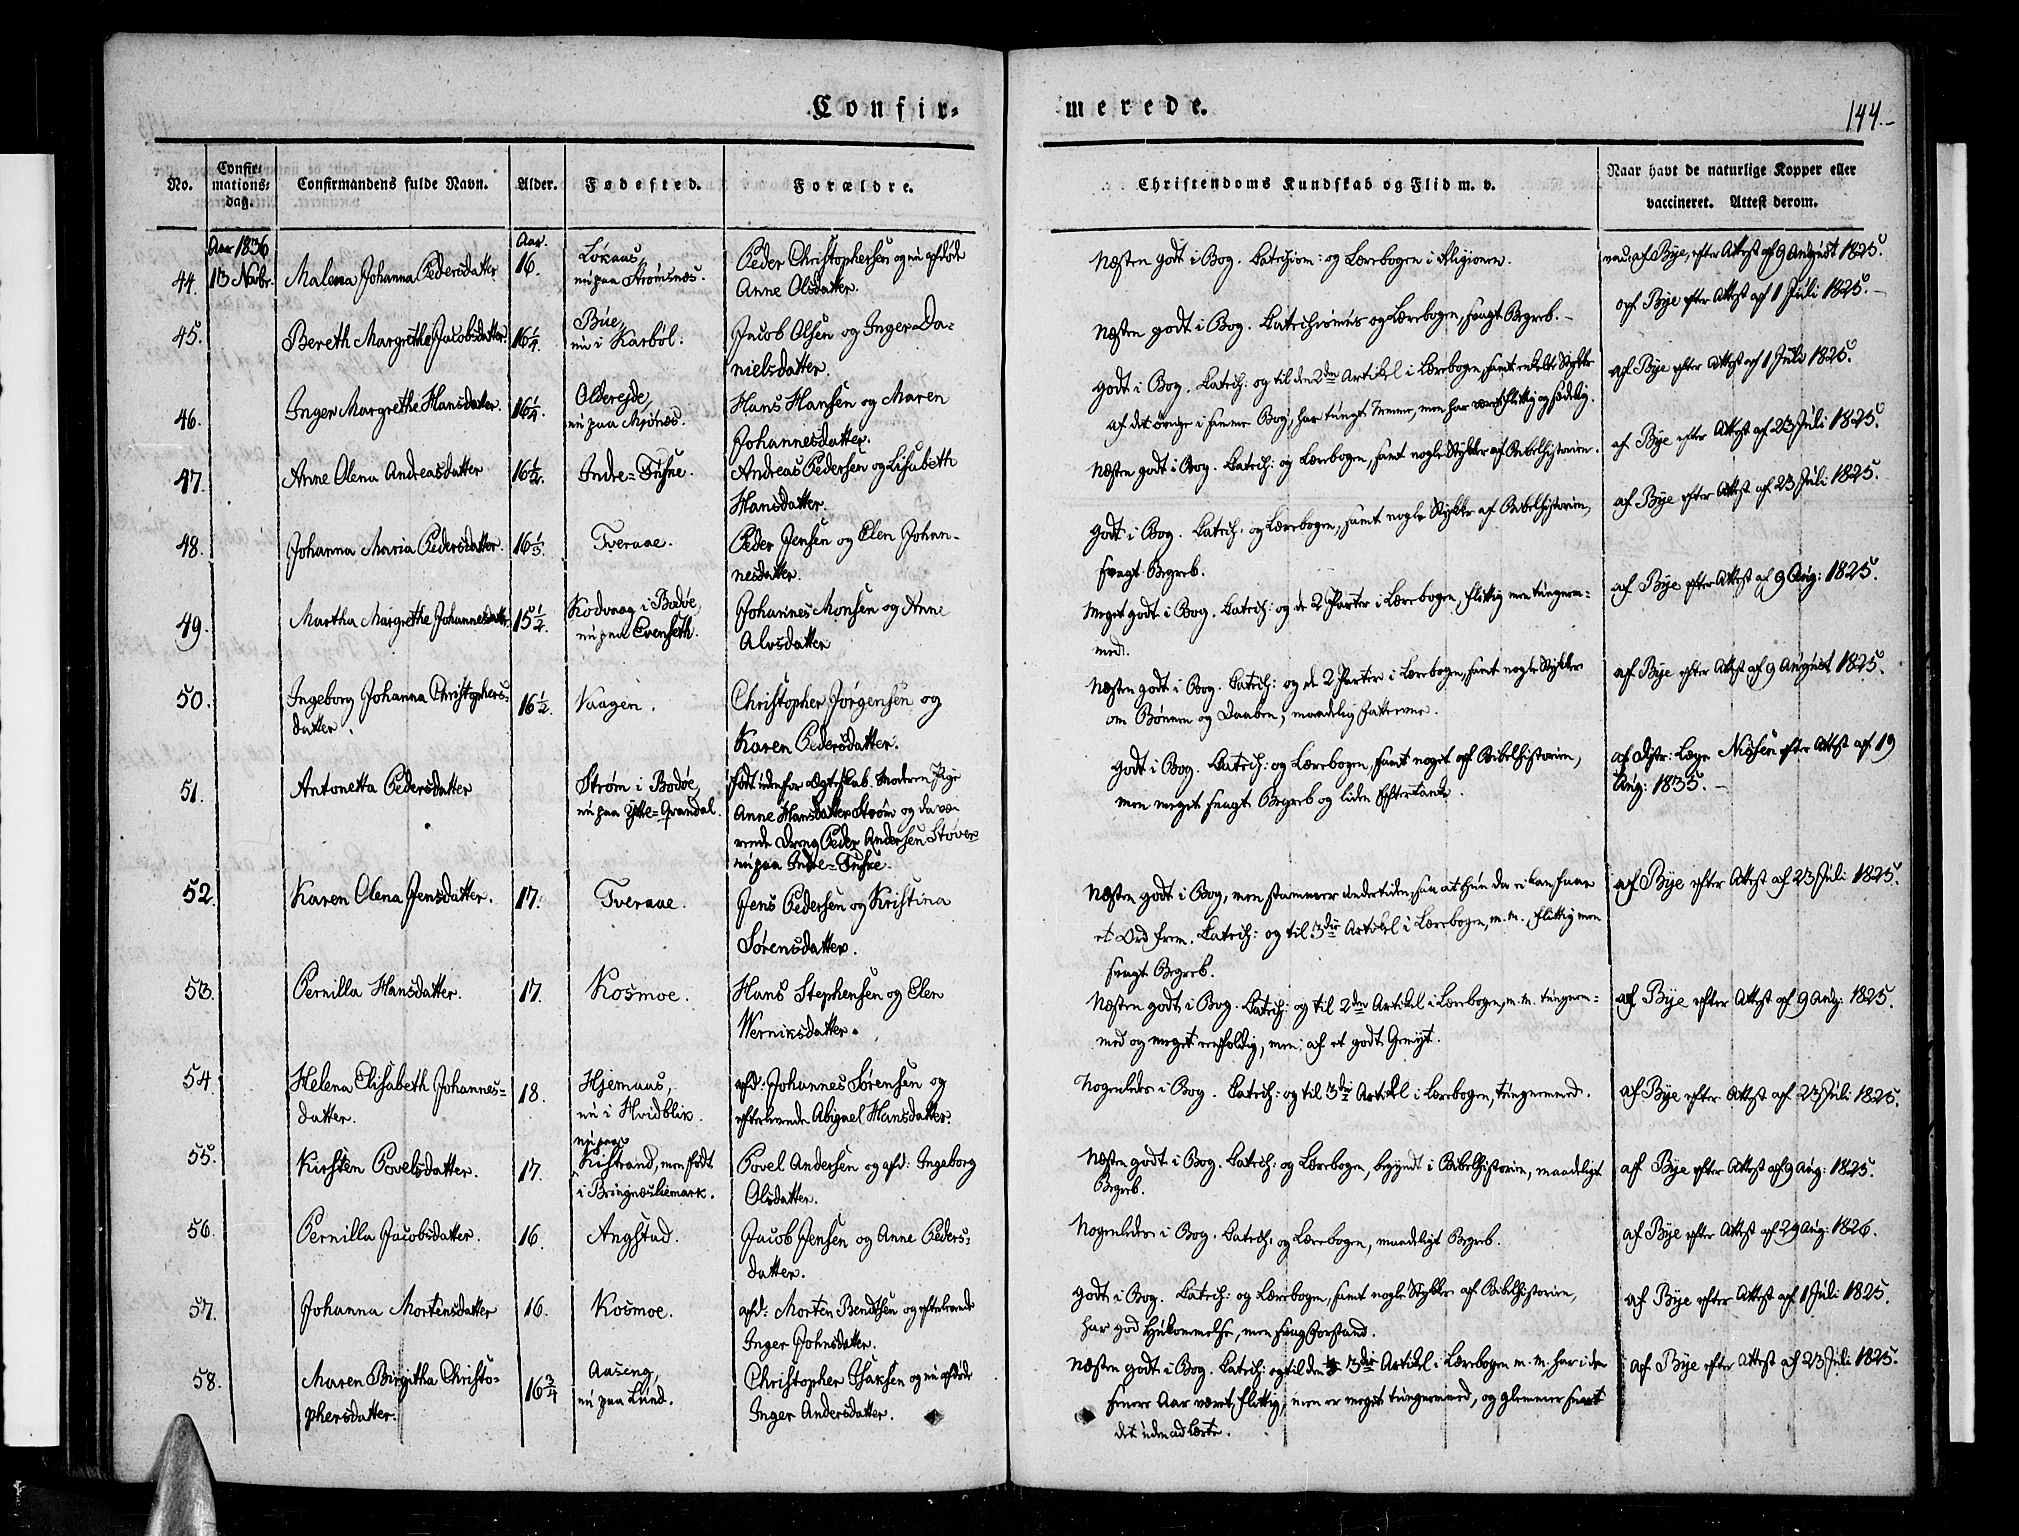 Confir-
merede.
144.-
No.
Confir-
mations-
dag.
Confirmandens fulde Navn.
Alder.
Fødested.
Forældre.
Christendoms Kundskab og Flid m. v.
Naar havt de naturlige Kopper eller
vaccineret. Attest derom.
Aar 1836
Aar.
44. 13 Novbr. Malena Johanna Pedersdatter 16. Løkaas,
nu paa Strømsnes.
Peder Christophersen og nu afdøde
Anne Olsdatter.
Næsten godt i Bog. Catechism: og Lærebogen i Religionen.
vac. af Bye, efter Attest af 9 August 1825.
45. Bereth Margrethe Jacobsdatter 16 1/4. Bue,
nu i Karbøl.
Jacob Olsen og Inger Da-
nielsdatter.
Næsten godt i Bog. Catechismus og Lærebogen, svagt Begreb.-
af Bye efter Attest af 1 Juli 1825.-
46. Inger Margrethe Hansdatter. 16 1/4. Oldereide,
nu paa Mjønes.
Hans Hansen og Maren
Johannesdatter.
Godt i Bog. Catech: og til den 2den Artikel i Lærebogen, samt enkelte Stykker
af det øvrige i samme Bog, har tungt Nemme, men har været flittig og sædelig.
af Bye efter Attest af 1 Juli 1825.
47. Anne Olena Andreasdatter 16 1/2. Indre-Tusne.
Andreas Pedersen og Lisabeth
Hansdatter.
Næsten godt i Bog. Catech: og Lærebogen, samt nogle Stykker af Bibelhistorien.
af Bye efter Attest af 23 Juli 1825.
48. Johanna Maria Pedersdatter. 16 1/3. Tveraae.
Peder Jensen og Elen Johan-
nesdatter.
Godt i Bog. Catech: og Lærebogen, samt nogle Stykker af Bibelhistorien,
svagt Begreb.
af Bye efter Attest af 23 Juli 1825.
49. Martha Margrethe Johannesdatter 15 1/2. Kodvaag i Bodøe,
nu paa Evenseth.
Johannes Monsen og Anne
Alvsdatter
Meget godt i Bog. Catech: og de 2 Parter i Lærebogen, flittig men tungnem-
med.
af Bye efter Attest af 9 Aug: 1825.
50. Ingeborg Johanna Christophers-
datter. 16 1/2. Vaagen.
Christopher Jørgensen og
Karen Pedersdatter.
Næsten godt i Bog. Catech: og de 2 Parter i Lærebogen, samt nogle Stykker
om Bønnen og Daaben, maadelig Fatteevne.
af Bye efter Attest af 9 August 1825.
51. Antonetta Pedersdatter Strøm i Bodøe,
nu paa Ytte-Grandal.
født udenfor Ægteskab. Moderen Pige
Anne Hansdatter Strøm og da væ-
rende Dreng Peder Andersen Støver
nu paa Indre-Tusne.
Godt i Bog. Catech: og Lærebogen, samt noget af Bibelhistorien,
men meget svagt Begreb og liden Eftertanke.
af Distr: Læge Nissen efter Attest af 19
Aug: 1835.-
52. Karen Olena Jensdatter. 17. Tveraae.
Jens Pedersen og Kristina
Sørensdatter.
Næsten godt i Bog, men stammer undertiden, saa at hun da ei kan faae
et Ord frem. Catech: og til 3die Artikel i Lærebogen, m.m. flittig men
svagt Begreb.
af Bye efter Attest af 23 Juli 1825.
53. Pernilla Hansdatter. 17. Kosmoe.
Hans Stephensen og Elen
Werniksdatter.
Næsten godt i Bog. Catech: og til 2den Artikel i Lærebogen, m.m. tungnem-
med og meget eenfoldig, men af et godt Gemyt.
af Bye efter Attest af 9 Aug: 1825.
54. Helena Elisabeth Johannes-
datter. 18. Hjemaas,
nu i Hvidblik.
afd: Johannes Sørensen og
efterlevende Abigael Hansdatter.
Nogenledes i Bog. Catech: og til 3die Artikel i Lærebogen, tungnemmed.
af Bye efter Attest af 23 Juli 1825.
55. Kirsten Povelsdatter. 17. nu paa
Kistrand, men født
i Bringnæsliemark.
Povel Andersen og afd: Ingeborg
Olsdatter.
Næsten godt i Bog. Catech: og Lærebogen, begyndt i Bibelhistorien, maadeligt
Begreb.
af Bye efter Attest af 9 Aug: 1825.
56. Pernilla Jacobsdatter. 16. Angstad.
Jacob Jensen og Anne Peders-
datter.
Nogenledes i Bog. Catech: og Lærebogen, maadeligt Begreb.
af Bye efter Attest af 29 Aug: 1826.
57. Johanna Mortensdatter 16. Kosmoe.
afd: Morten Bendtsen og efterlevende
Inger Johnsdatter.
Godt i Bog. Catech: og Lærebogen, samt nogle Stykker af Bibelhistorien,
har god Hukommelse, men svag Forstand.
af Bye efter Attest af 1 Juli 1825.
58. Maren Birgitha Christo-
phersdatter. 16 3/4 Aaseng,
nu paa Lund.
Christopher Isaksen og nu afdøde
Inger Andersdatter.
Næsten godt i Bog. Catech: og til den 3die Artikel i Lærebogen m.m. har i den
senere Aar været flittig, men er meget tungnemmed, og glemmer snart
det udenad lærte.
af Bye efter Attest af 23 Juli 1825.